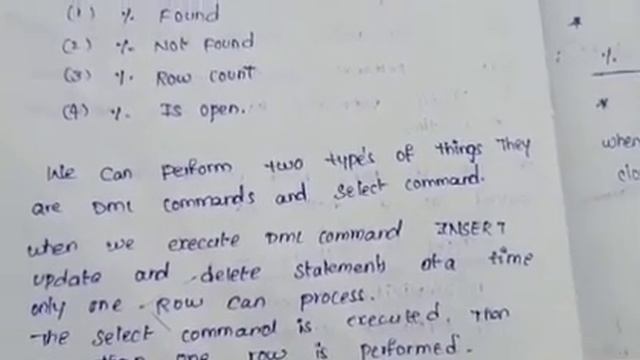 (1) % Found
(2) % Not Found
(3) % Row count
(4) % Is open.
We can perform two type's of things They
are DML commands and select command.
when we execute DML command INSERT
update and delete statements at a time
only one Row can process.
The select command is executed. Than
than one row is performed.
%
when
clo